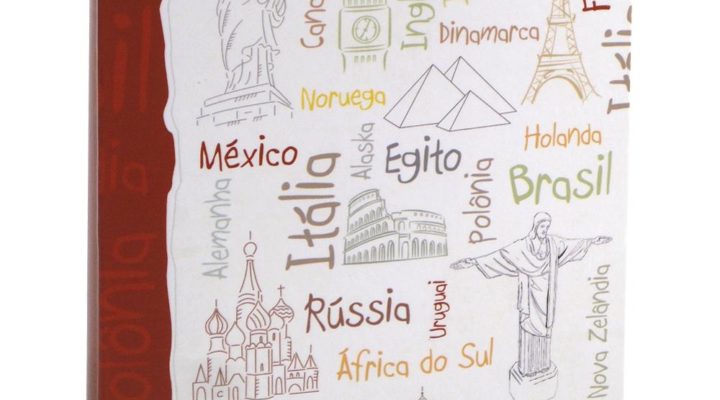 Cana
Ingl
Dinamarca
Itália
Noruega
Holanda
México
Alaska
Egito
Itália
Polônia
Brasil
Alemanha
Rússia
Uruguai
África do Sul
Nova Zelândia
olônia